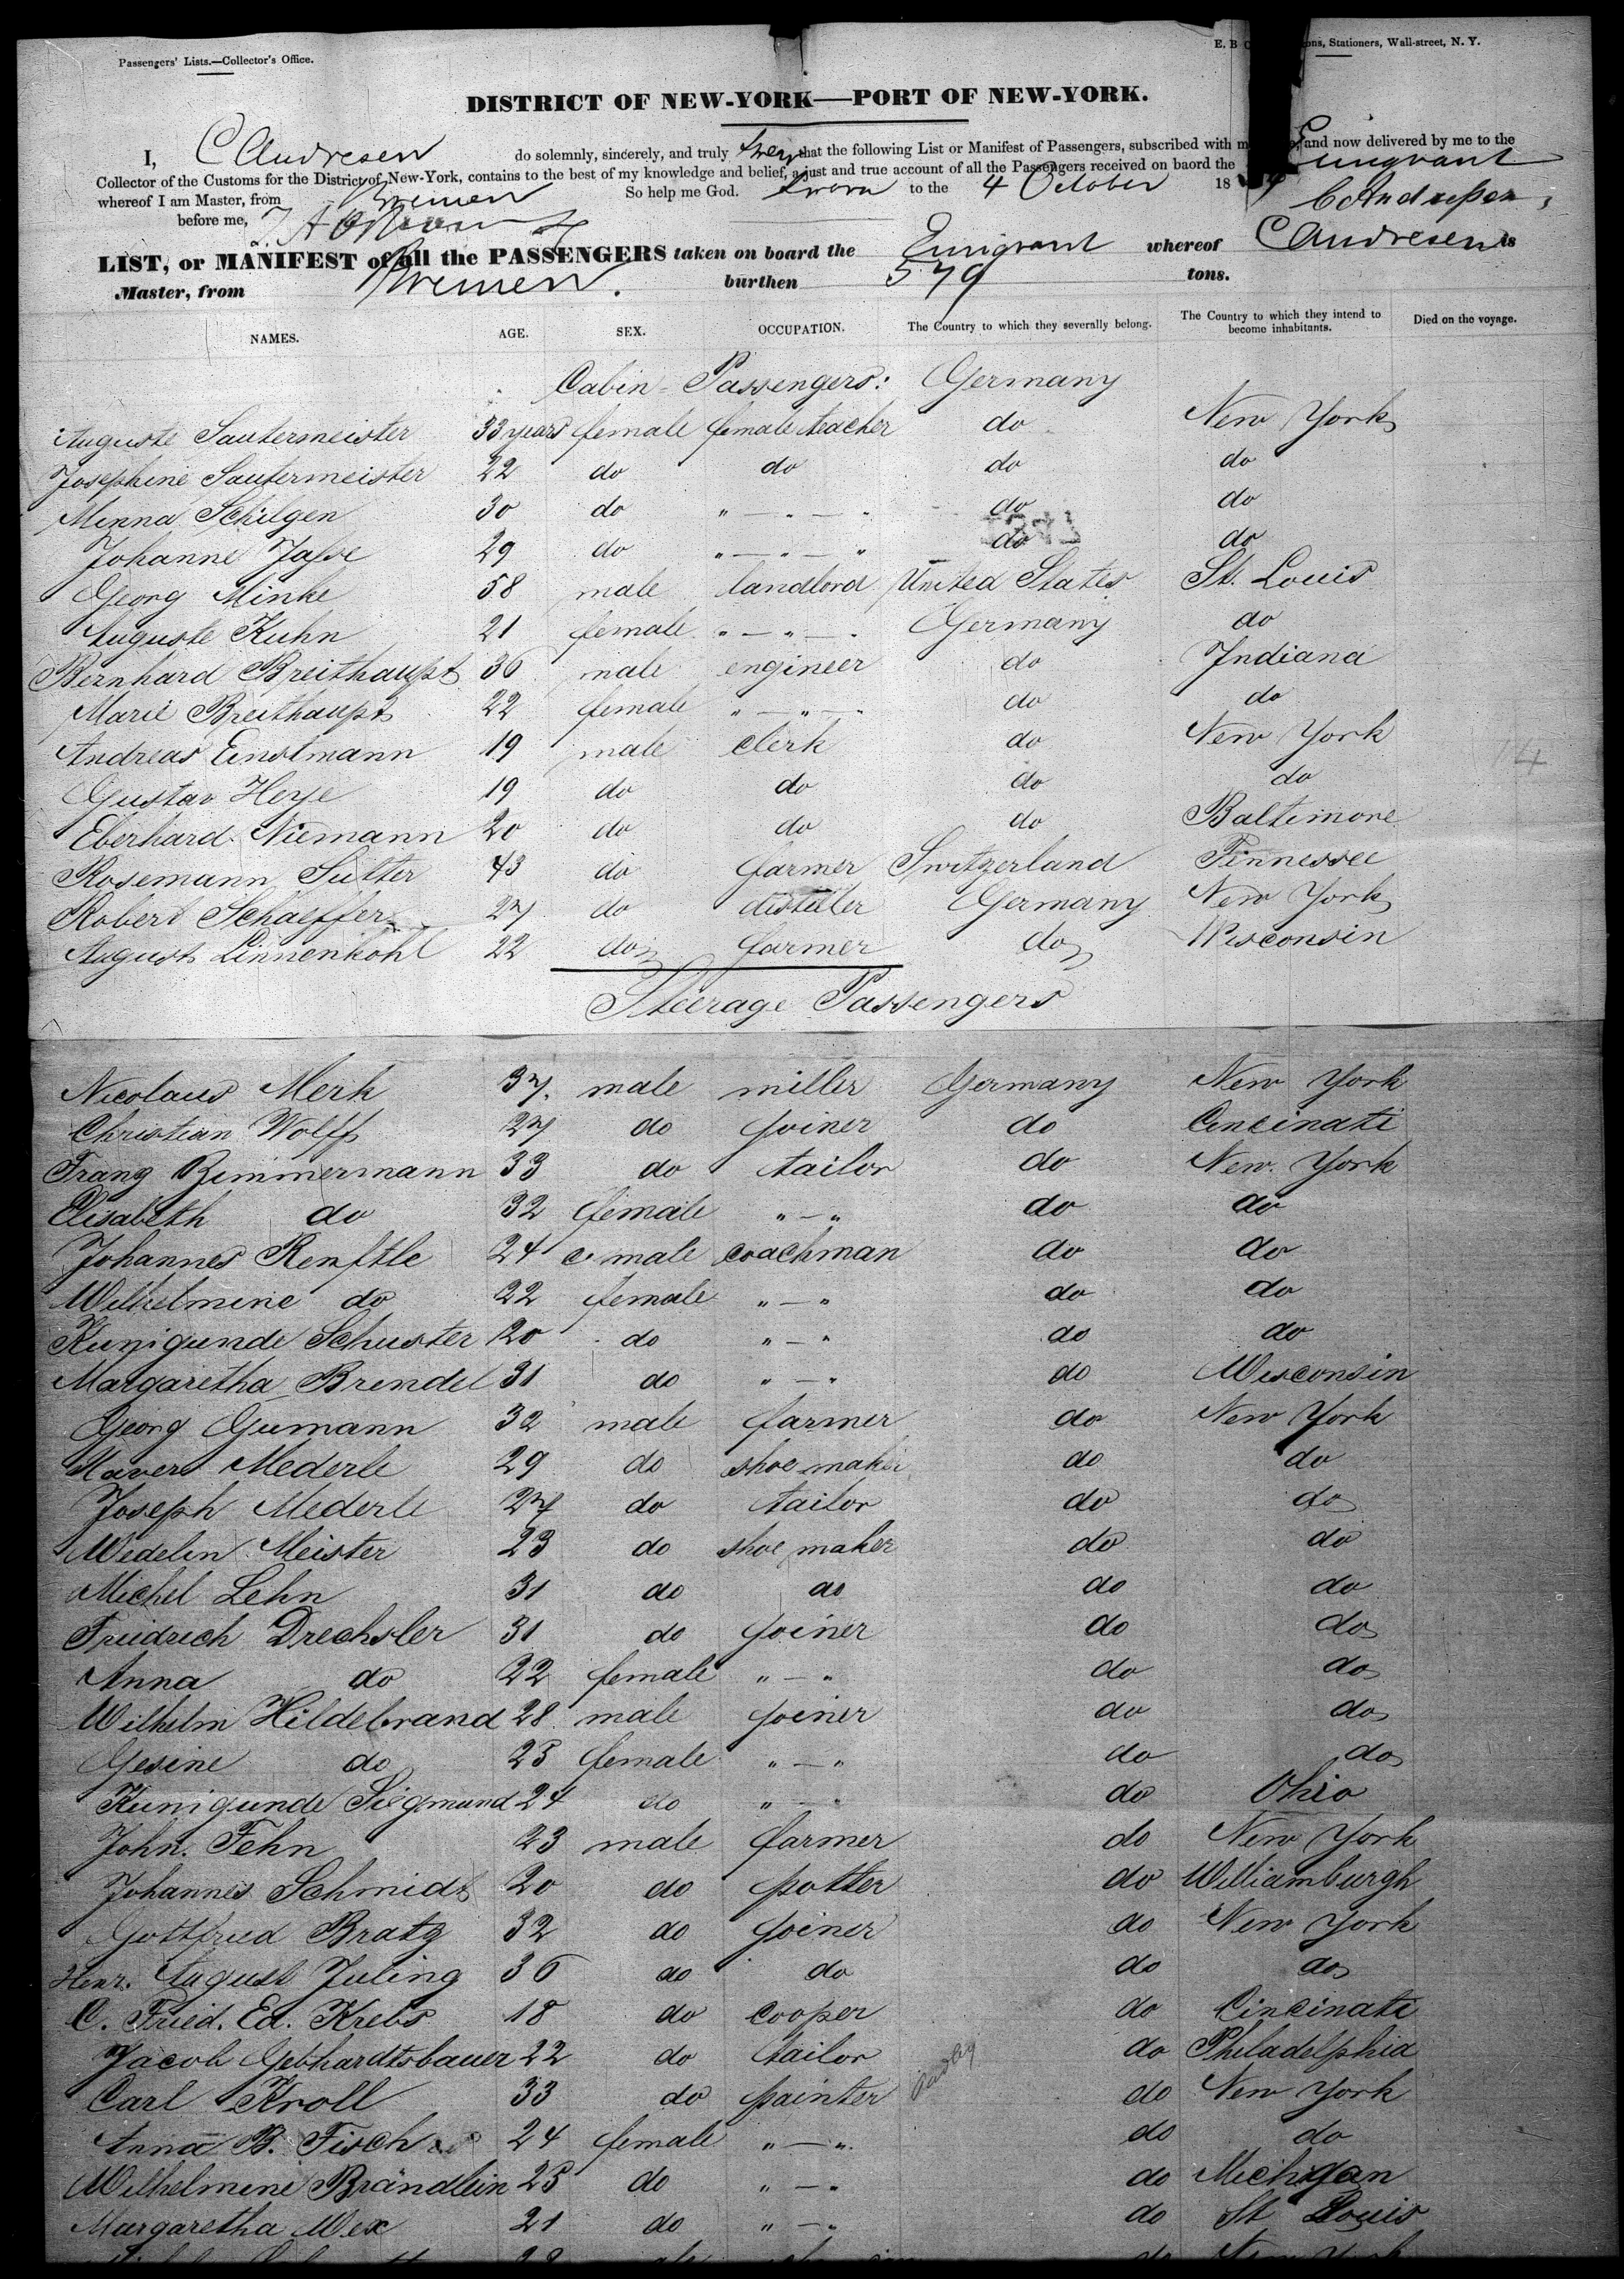 Passengers' Lists.—Collector's Office.
E. B ons, Stationers, Wall-street, N. Y.
DISTRICT OF NEW-YORK—PORT OF NEW-YORK.
I, C Andresen do solemnly, sincerely, and truly that the following List or Manifest of Passengers, subscribed with m and now delivered by me to the
Collector of the Customs for the District of New-York, contains to the best of my knowledge and belief, a just and true account of all the Passengers received on baord the Emigrant
whereof I am Master, from Bremen So help me God. Sworn to the 4 October 18
before me,
LIST, or MANIFEST of all the PASSENGERS taken on board the Emigrant whereof C Andresen is
Master, from Bremen. burthen 579 tons.
NAMES. AGE. SEX. OCCUPATION. The Country to which they severally belong. The Country to which they intend to become inhabitants. Died on the voyage.
Cabin - Passengers: Germany
Auguste Sautermeister 33 years female female teacher do New York
Josephine Sautermeister 22 do do do do
Minna Schilgen 30 do " — " — " do do
Johanne 29 do " — " — " do do
Georg Minke 58 male landlord United States St. Louis
Auguste Kuhn 21 female " — " — " Germany do
Bernhard Breithaupt 36 male engineer do Indiana
Marie Breithaupt 22 female " — " — " do do
Andreas Einstmann 19 male clerk do New York
Gustav Heye 19 do do do do
Eberhard Niemann 20 do do do Baltimore
Rosemann Sutter 43 do farmer Switzerland Tinnessee
Robert Schaeffer 27 do distiller Germany New York
August Linnenkohl 22 do farmer do Wisconsin
Steerage Passengers
Nicolaus Merk 37 male miller Germany New York
Christian Wolff 27 do joiner do Cincinati
Franz Rimmermann 33 do tailor do New York
Elisabeth do 32 female " — " do do
Johannes Renftle 24 male coachman do do
Wilhelmine do 22 female " — " do do
Kunigunde Schuster 20 do " — " do do
Margaretha Brendel 31 do " — " do Wisconsin
Georg Gumann 32 male farmer do New York
Xaver Mederle 29 do shoe maker do do
Joseph Mederle 27 do tailor do do
Wedelin Meister 23 do shoe maker do do
Michel Lehn 31 do do do do
Friedrich Drechsler 31 do joiner do do
Anna do 22 female " — " do do
Wilhelm Hildebrand 28 male joiner do do
Gesine do 23 female " — " do do
Kunigunde Siegmund 24 do " — " do Ohio
John. Fehn 23 male farmer do New York
Johannes Schmidt 20 do potter do Williamburgh
Gottfried Bratz 32 do joiner do New York
Henr. August Juling 36 do do do do
C. Fried. Ed. Krebs 18 do cooper do Cincinati
Jacob Gebhardtsbauer 22 do tailor do Philadelphia
Carl Kroll 33 do painter do New York
Anna B. Fisch 24 female " — " do do
Wilhelmine Brändlein 23 do " — " do Michigan
Margaretha Wex 21 do " — " do St Louis